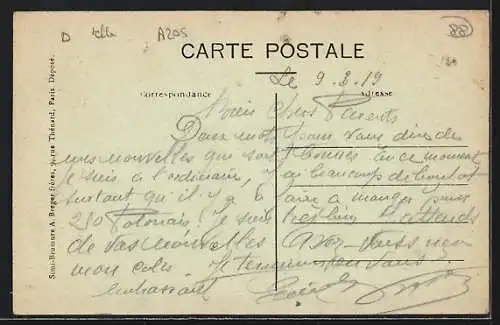 D A205 88
CARTE POSTALE
Le 9.8.19
Correspondance Adresse
Semi-Bromure A. Breger frères, 9, rue Thénard, Paris. Déposé.
Chers Parents
Deux mots pour vous dire de
mes nouvelles que sont bonnes En ce moment
je suis à l'ordinaire, j'ai beaucoup de boulot
surtout qu'il y a à faire à manger pour
250 Polonais. Je suis J'attends
de vos nouvelles Avez-vous reçu
mon colis. Je termine en vous
embrassant